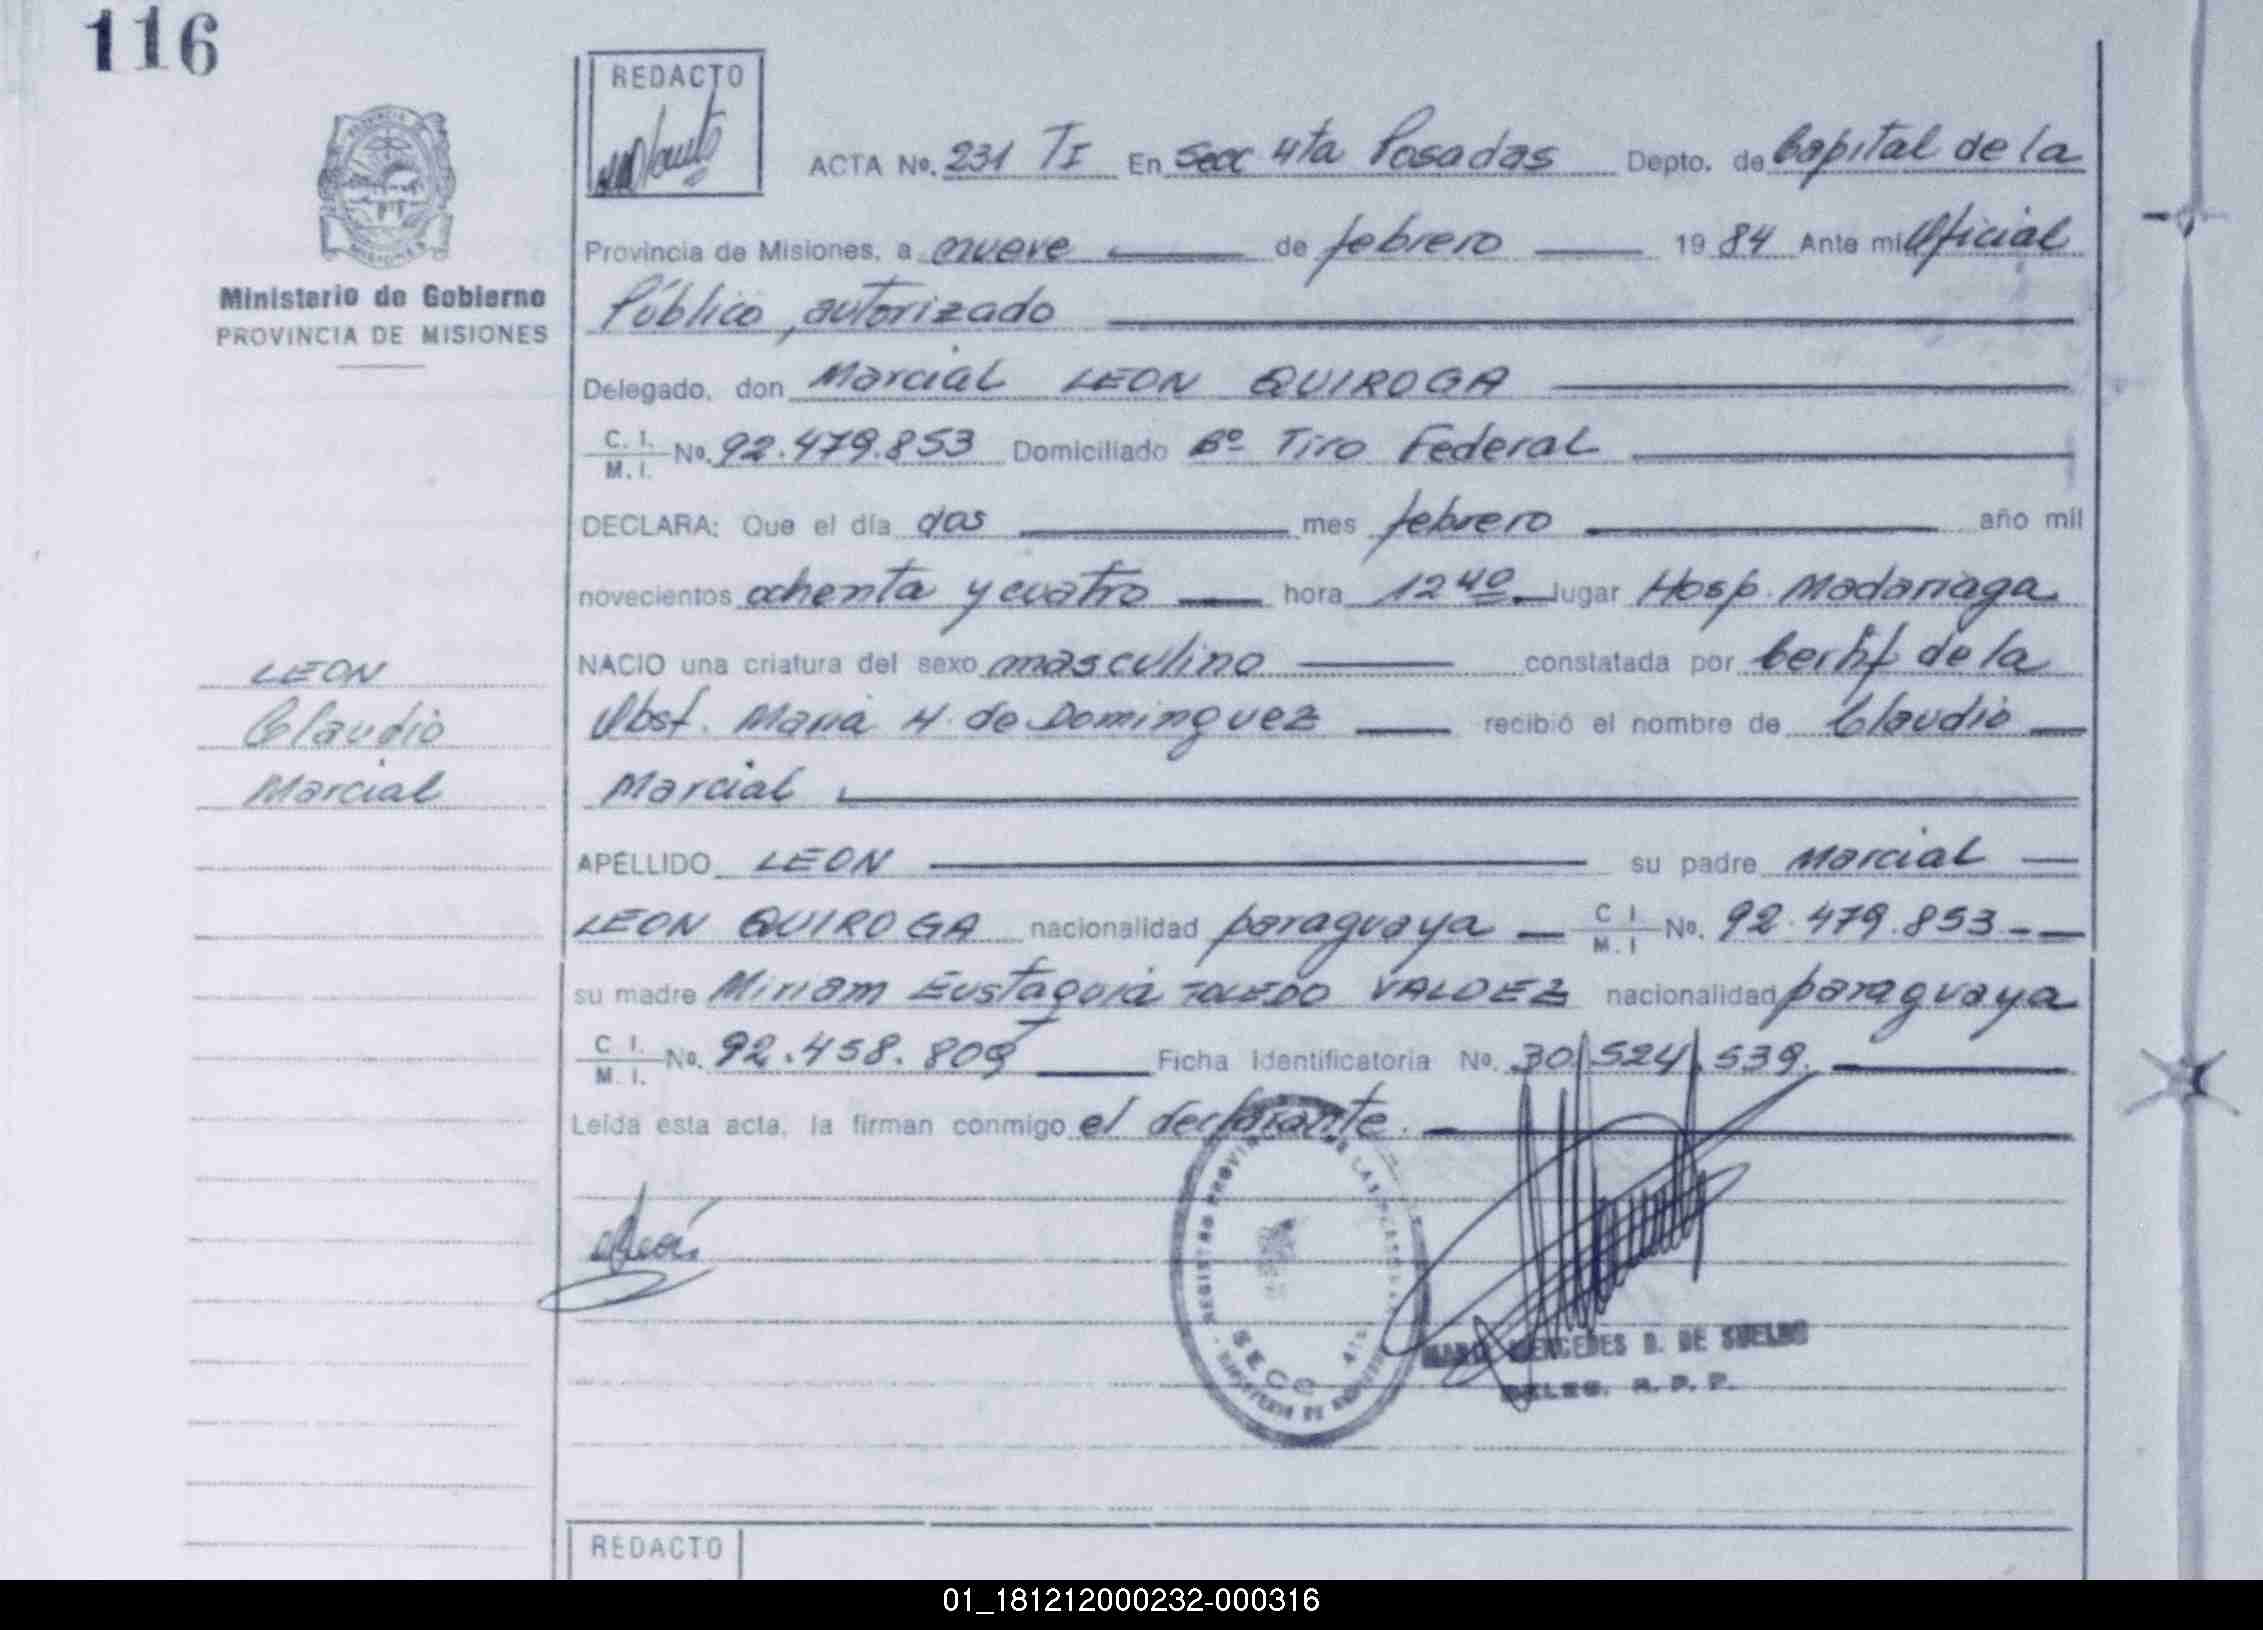 116
REDACTO
ACTA No. 231 TI En Secc 4ta Posadas Depto. de Capital de la
Provincia de Misiones, a nueve de febrero 1984 Ante mi Oficial
Ministerio de Gobierno
PROVINCIA DE MISIONES
Público, autorizado
Delegado, don Marcial LEON QUIROGA
C. I. / M. I. No. 92.479.853 Domiciliado Bº Tiro Federal
DECLARA: Que el día dos mes febrero año mil
novecientos ochenta y cuatro hora 12 40 lugar Hosp. Madariaga
NACIO una criatura del sexo masculino constatada por Certif de la
Obst. Maria H. de Dominguez recibió el nombre de Claudio
Marcial
LEON
Claudio
Marcial
APELLIDO LEON su padre Marcial
LEON QUIROGA nacionalidad paraguaya C I. / M. I No. 92.479.853
su madre Miriam Eustaquia TOLEDO VALDEZ nacionalidad paraguaya
C I. / M. I. No. 92.458.809 Ficha Identificatoria No. 30.524.539.
Leída esta acta, la firman conmigo el declarante.
MERCEDES D. DE SUELDO
DELEG. R. P. P.
REDACTO
01_181212000232-000316